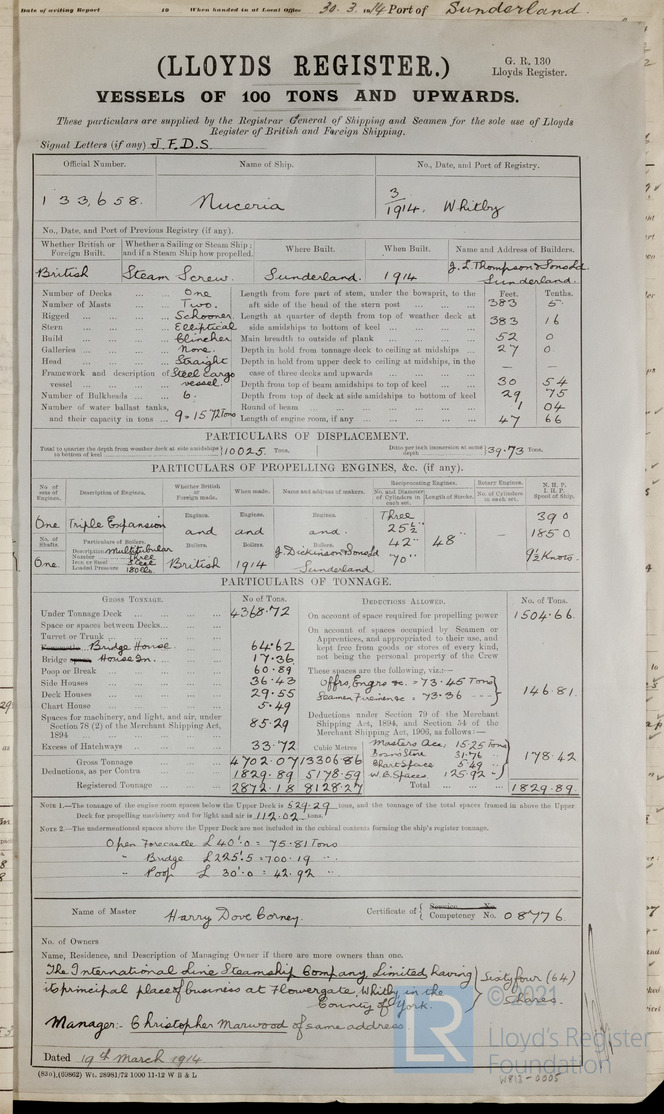 Date of writing Report 19 When handed in at Local Office 30. 3. 1914 Port of Sunderland.
(LLOYDS REGISTER.)
G. R. 130
Lloyds Register.
VESSELS OF 100 TONS AND UPWARDS.
These particulars are supplied by the Registrar General of Shipping and Seamen for the sole use of Lloyds
Register of British and Foreign Shipping.
Signal Letters (if any) J. F. D. S.
Official Number. Name of Ship. No., Date, and Port of Registry.
133,658. Nuceria 3/1914. Whitby
No., Date, and Port of Previous Registry (if any).
Whether British or Foreign Built. Whether a Sailing or Steam Ship; and if a Steam Ship how propelled. Where Built. When Built. Name and Address of Builders.
British Steam Screw. Sunderland. 1914 J. L. Thompson & Sons Ld
Sunderland.
Number of Decks ... ... One
Number of Masts ... ... Two.
Rigged ... ... Schooner.
Stern ... ... Elliptical
Build ... ... Clincher
Galleries ... ... None.
Head ... ... Straight
Framework and description of vessel ... Steel Cargo vessel.
Number of Bulkheads ... 6.
Number of water ballast tanks, and their capacity in tons ... 9 = 1572 tons
Feet. Tenths.
Length from fore part of stem, under the bowsprit, to the aft side of the head of the stern post ... 383 5
Length at quarter of depth from top of weather deck at side amidships to bottom of keel ... 383 16
Main breadth to outside of plank ... 52 0
Depth in hold from tonnage deck to ceiling at midships ... 27 0
Depth in hold from upper deck to ceiling at midships, in the case of three decks and upwards ... — —
Depth from top of beam amidships to top of keel ... 30 54
Depth from top of deck at side amidships to bottom of keel 29 75
Round of beam ... 1 04
Length of engine room, if any ... 47 66
PARTICULARS OF DISPLACEMENT.
Total to quarter the depth from weather deck at side amidships to bottom of keel } 10025. Tons. Ditto per inch immersion at same depth } 39.73 Tons.
PARTICULARS OF PROPELLING ENGINES, &c. (if any).
No. of sets of Engines. Description of Engines. Whether British or Foreign made. When made. Name and address of makers. Reciprocating Engines. No. and Diameter of Cylinders in each set. Length of Stroke. Rotary Engines. No. of Cylinders in each set. N. H. P. I. H. P. Speed of Ship.
One Triple Expansion Engines. Engines. Engines. Three 390
25½" 1850
No. of Shafts. Particulars of Boilers. and and and. 42" 48" —
Description Multitubular Boilers. Boilers. Boilers. 9½ Knots.
Number Three
One. Iron or Steel Steel British 1914 J. Dickinson & Sons Ld 70"
Loaded Pressure 180 lbs Sunderland
PARTICULARS OF TONNAGE.
GROSS TONNAGE. No of Tons.
Under Tonnage Deck ... 4368.72
Space or spaces between Decks...
Turret or Trunk ...
Bridge House. 64.62
Bridge House In. 17.36
Poop or Break ... 60.89
Side Houses ... 36.43
Deck Houses ... 29.55
Chart House ... 5.49
Spaces for machinery, and light, and air, under Section 78 (2) of the Merchant Shipping Act, 1894 ... 85.29
Excess of Hatchways ... 33.72 Cubic Metres
Gross Tonnage ... 4702.07 13306.86
Deductions, as per Contra ... 1829.89 5178.59
Registered Tonnage ... 2872.18 8128.27
DEDUCTIONS ALLOWED. No. of Tons.
On account of space required for propelling power 1504.66.
On account of spaces occupied by Seamen or Apprentices, and appropriated to their use, and kept free from goods or stores of every kind, not being the personal property of the Crew
These spaces are the following, viz:—
Offrs, Engrs &c. = 73.45 Tons
Seamen Firemen &c = 73.36 } 146.81.
Deductions under Section 79 of the Merchant Shipping Act, 1894, and Section 54 of the Merchant Shipping Act, 1906, as follows:—
Masters Acc: 15.25 Tons
Bosns Store 31.76
Chart Space 5.49
W. B. Spaces. 125.92 } 178.42
Total ... 1829.89.
NOTE 1.—The tonnage of the engine room spaces below the Upper Deck is 529.29 tons, and the tonnage of the total spaces framed in above the Upper
Deck for propelling machinery and for light and air is 112.02 tons.
NOTE 2.—The undermentioned spaces above the Upper Deck are not included in the cubical contents forming the ship's register tonnage.
Open Forecastle L 40'.0 = 75.81 Tons
" Bridge L 225'.5 = 700.19 "
" Poop L 30'.0 = 42.92 "
Name of Master Harry Dove Corney. Certificate of { Service No.
Competency No. 08776
No. of Owners
Name, Residence, and Description of Managing Owner if there are more owners than one.
The International Line Steamship Company Limited, having
its principal place of business at Flowergate, Whitby in the
County of York. } Sixty four (64) Shares.
Manager:- Christopher Marwood of same address.
Dated 19th March 1914
(830).(69862) Wt. 28981/72 1000 11-12 W B & L
LR
© 2021
Lloyd's Register
Foundation
W813-0005